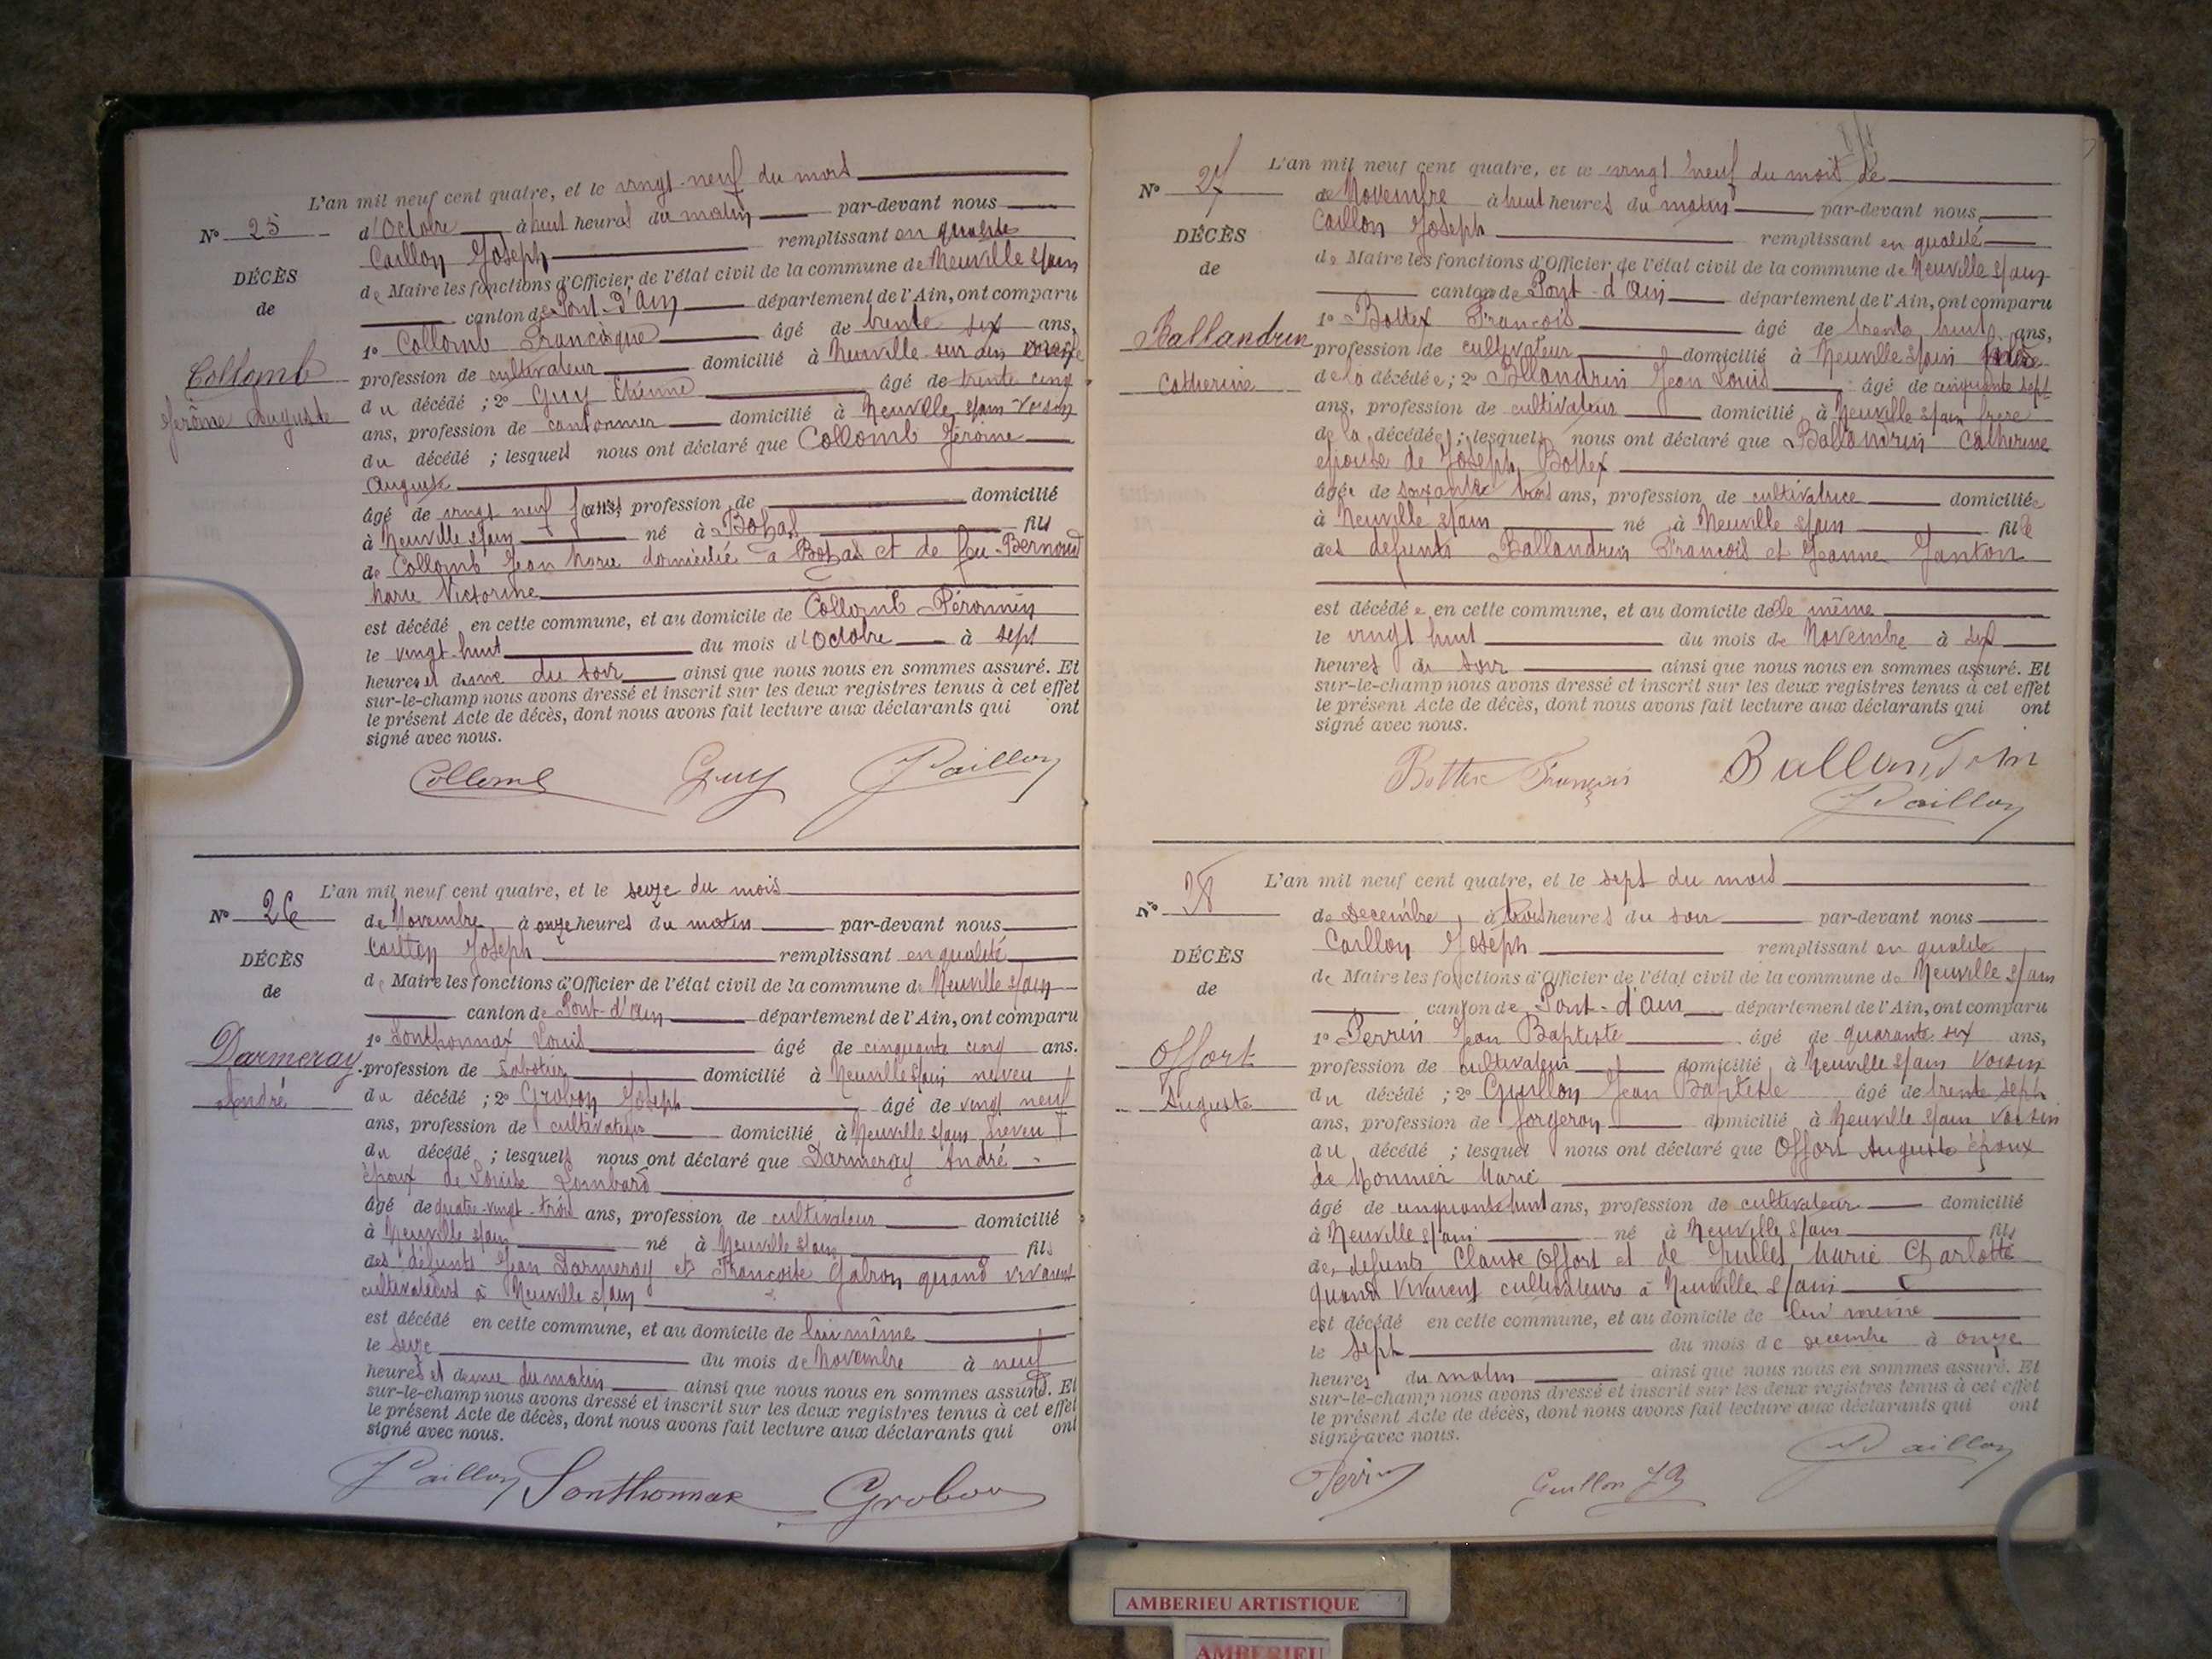 L'an mil neuf cent quatre, et le vingt-neuf du mois
N° 25
d'Octobre à huit heures du matin par-devant nous
Caillon Joseph remplissant en qualité
DÉCÈS
de
Collomb
Jérôme Auguste
de Maire les fonctions d'Officier de l'état civil de la commune de Neuville s/ain
canton de Pont-d'Ain département de l'Ain, ont comparu
1° Collomb Francisque âgé de trente six ans,
profession de cultivateur domicilié à Neuville-sur-ain
du décédé ; 2° Guy Etienne âgé de trente cinq
ans, profession de cantonnier domicilié à Neuville s/ain voisin
du décédé ; lesquels nous ont déclaré que Collomb Jérôme
Auguste
âgé de vingt neuf ans, profession de domicilié
à Neuville s/ain né à Bohas fils
de Collomb Jean Marie domicilié à Bohas et de feu Bernoud
Marie Victorine
est décédé en cette commune, et au domicile de Collomb
le vingt-huit du mois d'Octobre à sept
heures et demie du soir ainsi que nous nous en sommes assuré. Et
sur-le-champ nous avons dressé et inscrit sur les deux registres tenus à cet effet
le présent Acte de décès, dont nous avons fait lecture aux déclarants qui ont
signé avec nous.
Collomb Guy J Caillon
L'an mil neuf cent quatre, et le seize du mois
N° 26
de Novembre à onze heures du matin par-devant nous
Caillon Joseph remplissant en qualité
DÉCÈS
de
Darmeray
André
de Maire les fonctions d'Officier de l'état civil de la commune de Neuville s/ain
canton de Pont-d'ain département de l'Ain, ont comparu
1° Sonthonnax Louis âgé de cinquante cinq ans.
profession de sabotier domicilié à Neuville s/ain neveu
du décédé ; 2° Grobon Joseph âgé de vingt neuf
ans, profession de cultivateur domicilié à Neuville s/ain neveu
du décédé ; lesquels nous ont déclaré que Darmeray André
époux de Louise Lombard
âgé de quatre-vingt-trois ans, profession de cultivateur domicilié
à Neuville s/ain né à Neuville s/ain fils
des défunts Jean Darmeray et Françoise Galron quand vivaient
cultivateurs à Neuville s/ain
est décédé en cette commune, et au domicile de lui même
le seize du mois de Novembre à neuf
heures et demie du matin ainsi que nous nous en sommes assuré. Et
sur-le-champ nous avons dressé et inscrit sur les deux registres tenus à cet effet
le présent Acte de décès, dont nous avons fait lecture aux déclarants qui ont
signé avec nous.
J Caillon Sonthonnax Grobon
L'an mil neuf cent quatre, et le vingt neuf du mois de
N° 27
de Novembre à huit heures du matin par-devant nous
Caillon Joseph remplissant en qualité
DÉCÈS
de
Ballandrin
Catherine
de Maire les fonctions d'Officier de l'état civil de la commune de Neuville s/ain
canton de Pont-d'Ain département de l'Ain, ont comparu
1° Bottex François âgé de trente huit ans,
profession de cultivateur domicilié à Neuville s/ain
de la décédée ; 2° Ballandrin Jean Louis âgé de cinquante sept
ans, profession de cultivateur domicilié à Neuville s/ain frère
de la décédée ; lesquels nous ont déclaré que Ballandrin Catherine
épouse de Joseph Bottex
âgée de soixante trois ans, profession de cultivatrice domiciliée
à Neuville s/ain né à Neuville s/ain fille
des défunts Ballandrin François et Jeanne Janton
est décédée en cette commune, et au domicile d'elle même
le vingt huit du mois de Novembre à six
heures du soir ainsi que nous nous en sommes assuré. Et
sur-le-champ nous avons dressé et inscrit sur les deux registres tenus à cet effet
le présent Acte de décès, dont nous avons fait lecture aux déclarants qui ont
signé avec nous.
Bottex François Ballandrin
J Caillon
L'an mil neuf cent quatre, et le sept du mois
N° 28
de Décembre à trois heures du soir par-devant nous
Caillon Joseph remplissant en qualité
DÉCÈS
de
Offort
Auguste
de Maire les fonctions d'Officier de l'état civil de la commune de Neuville s/ain
canton de Pont-d'ain département de l'Ain, ont comparu
1° Perrin Jean Baptiste âgé de quarante six ans,
profession de cultivateur domicilié à Neuville s/ain voisin
du décédé ; 2° Guillon Jean Baptiste âgé de trente sept
ans, profession de forgeron domicilié à Neuville s/ain voisin
du décédé ; lesquels nous ont déclaré que Offort Auguste époux
de Monnier Marie
âgé de cinquante huit ans, profession de cultivateur domicilié
à Neuville s/ain né à Neuville s/ain fils
des défunts Claude Offort et de Marie Charlotte
quand vivaient cultivateurs à Neuville s/ain
est décédé en cette commune, et au domicile de lui même
le sept du mois de décembre à onze
heures du matin ainsi que nous nous en sommes assuré. Et
sur-le-champ nous avons dressé et inscrit sur les deux registres tenus à cet effet
le présent Acte de décès, dont nous avons fait lecture aux déclarants qui ont
signé avec nous.
Perrin Guillon JB J Caillon
AMBERIEU ARTISTIQUE
AMBERIEU